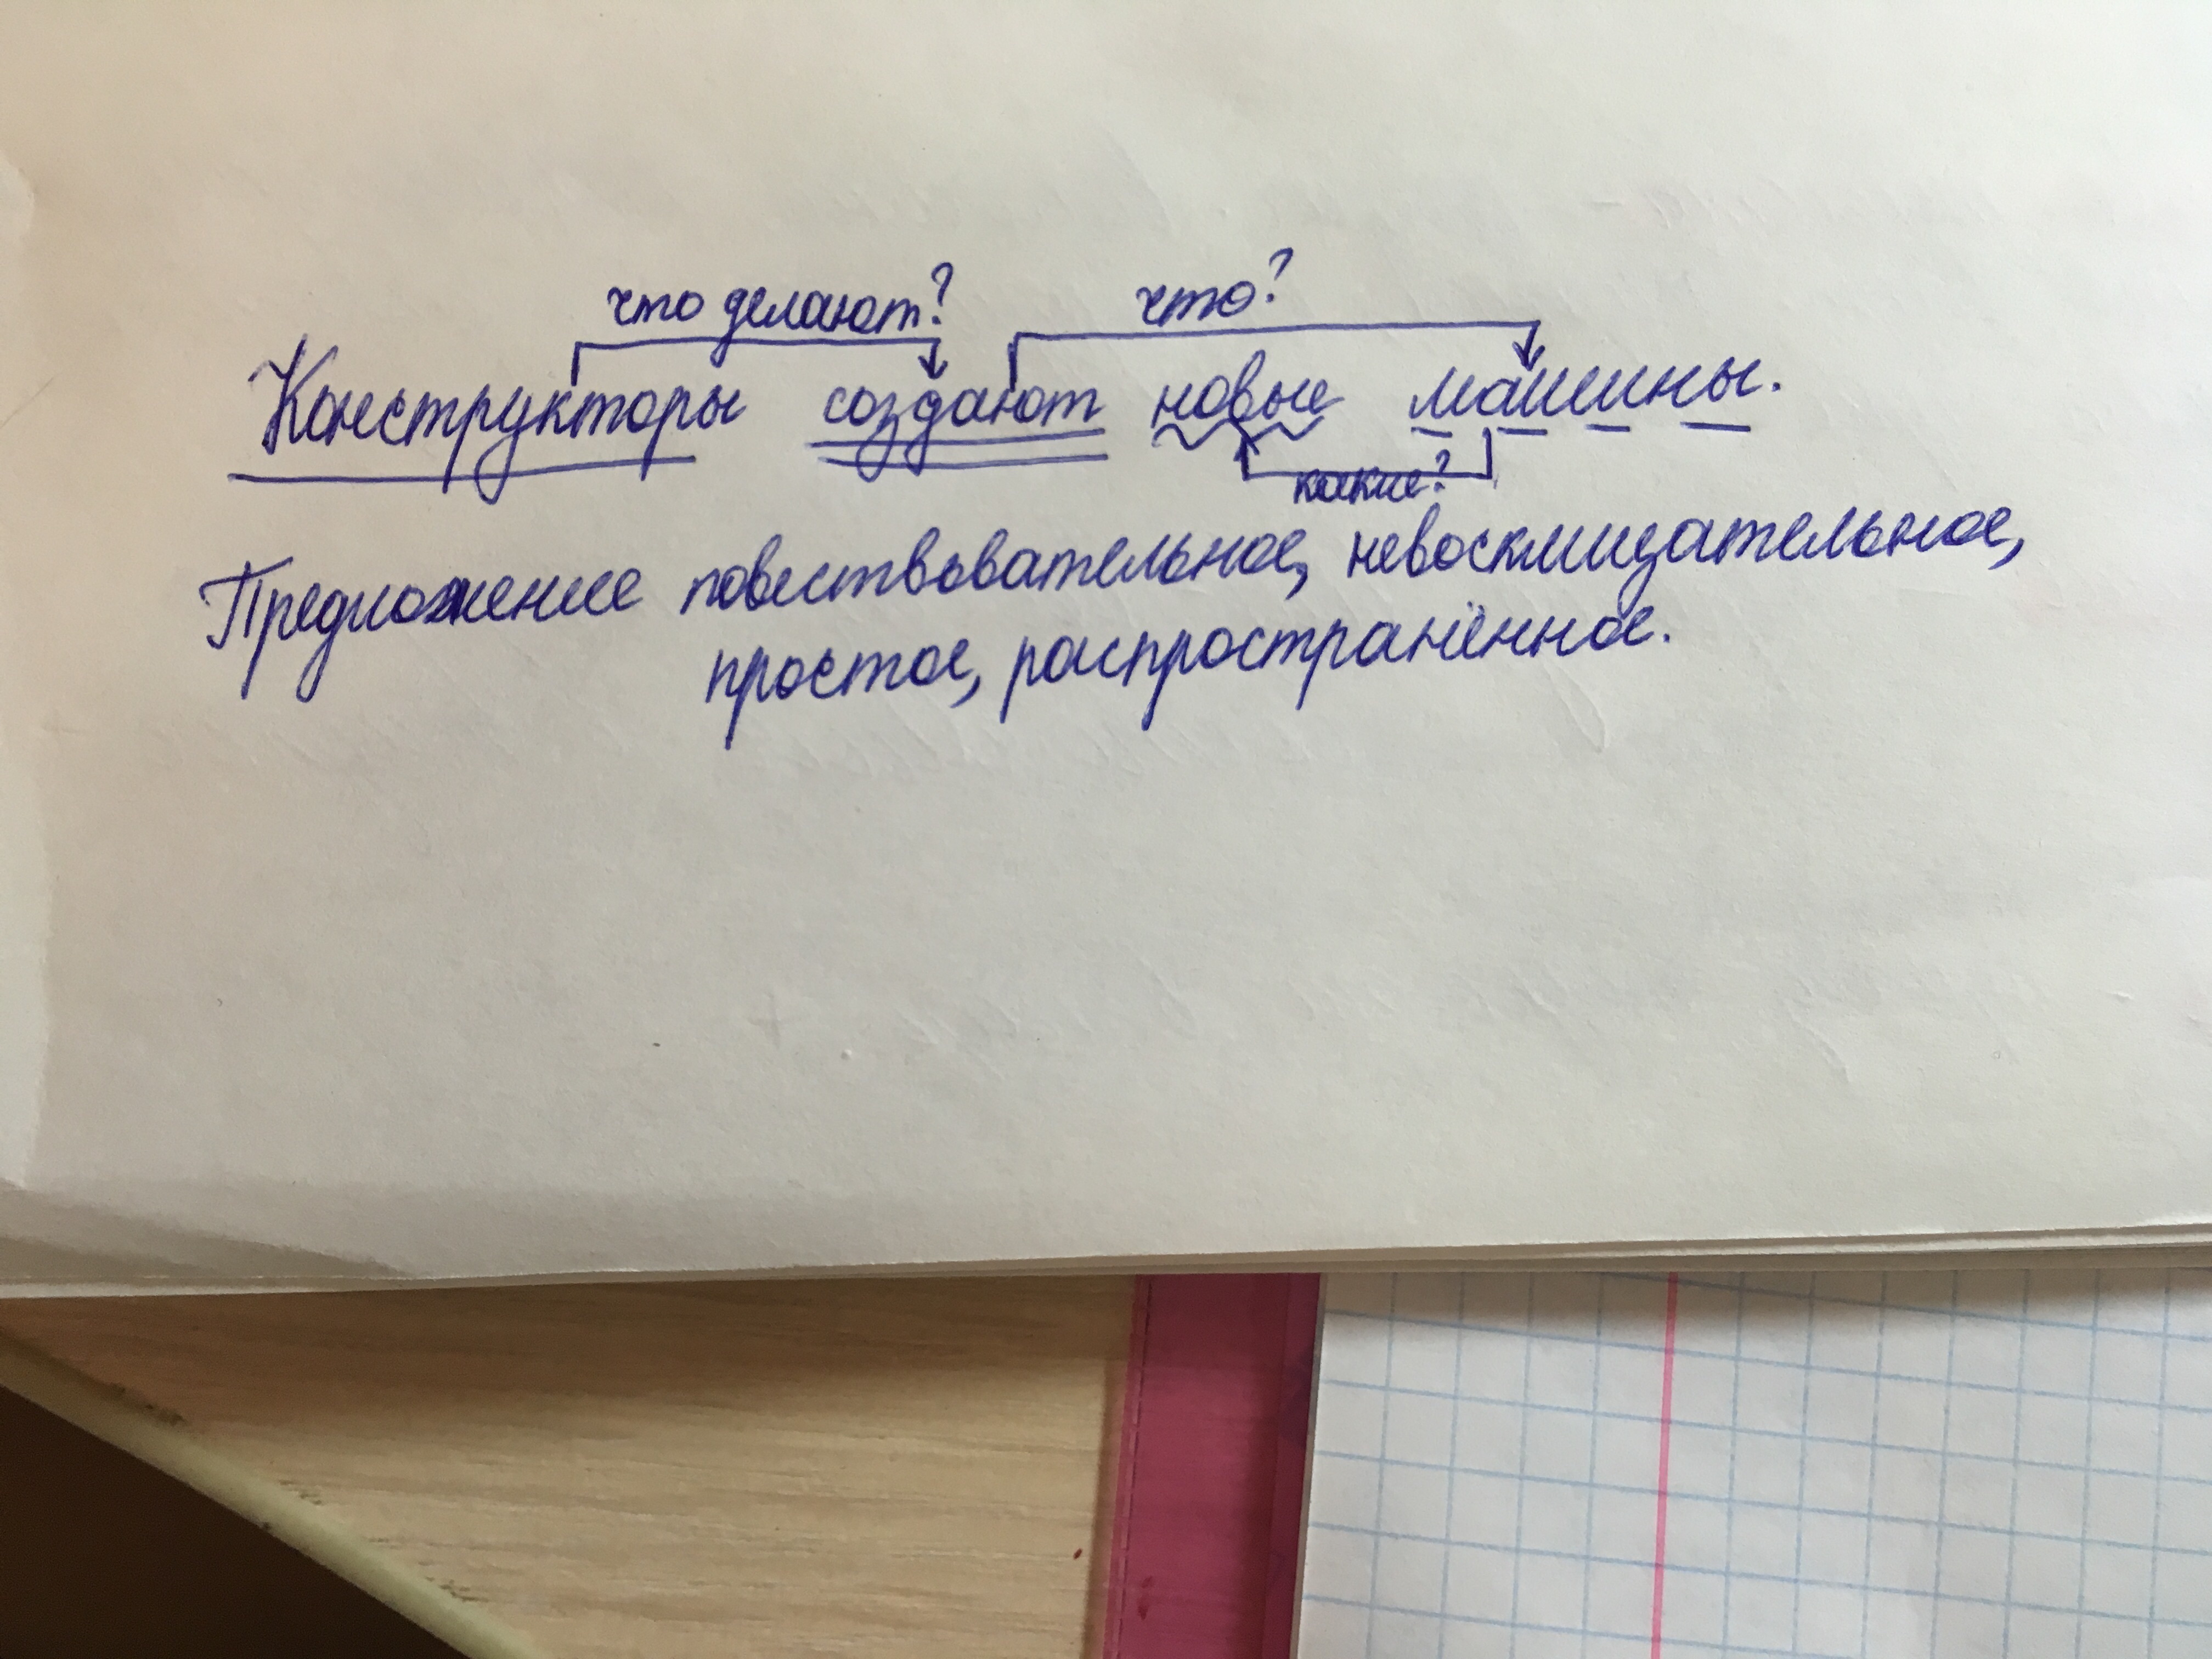 что делают? что?
Конструкторы создают новые машины.
какие?
Предложение повествовательное, невосклицательное,
простое, распространённое.